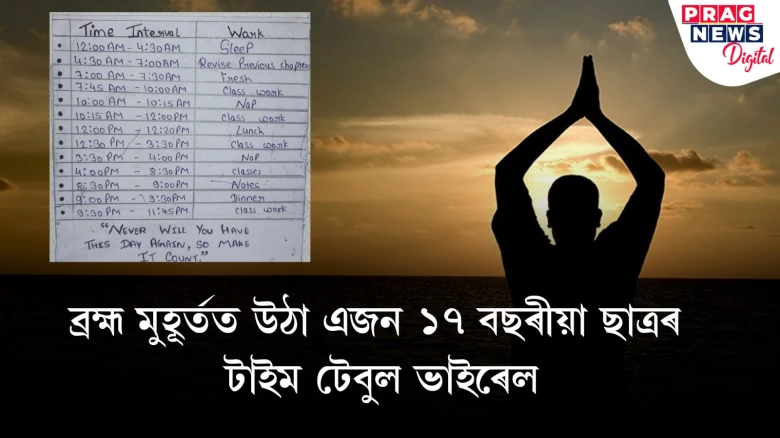 PRAG
NEWS
Digital
Time Interval Work
12:00 AM - 4:30 AM Sleep
4:30 AM - 7:00 AM Revise Previous chapters
7:00 AM - 7:30 AM Fresh
7:45 AM - 10:00 AM Class work
10:00 AM - 10:15 AM Nap
10:15 AM - 12:00 PM class work
12:00 PM - 12:20 PM Lunch
12:30 PM - 3:30 PM Class work
3:30 PM - 4:00 PM Nap
4:00 PM - 8:30 PM classes
8:30 PM - 9:00 PM Notes
9:00 PM - 9:30 PM Dinner
9:30 PM - 11:45 PM class work
"NEVER WILL YOU HAVE
THIS DAY AGAIN, SO MAKE
IT COUNT."
ব্ৰহ্ম মুহূৰ্তত উঠা এজন ১৭ বছৰীয়া ছাত্ৰৰ
টাইম টেবুল ভাইৰেল